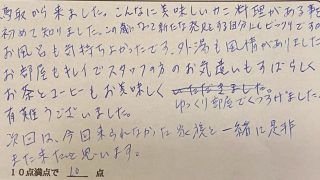 鳥取から来ました。こんなに美味しいカニ料理がある事を
初めて知りました。この歳になって新たな発見をする自分にもビックリですが
お風呂も気持ちよかったです。外湯も風情がありました
お部屋もキレイでスタッフの方のお気遣いもすばらしく
お茶とコーヒーもお美味しく
ゆっくり部屋でくつろげました。
有難うございました。
次回は、今回来られなかった家族と一緒に是非
また来たいと思います。
10点満点で 10 点